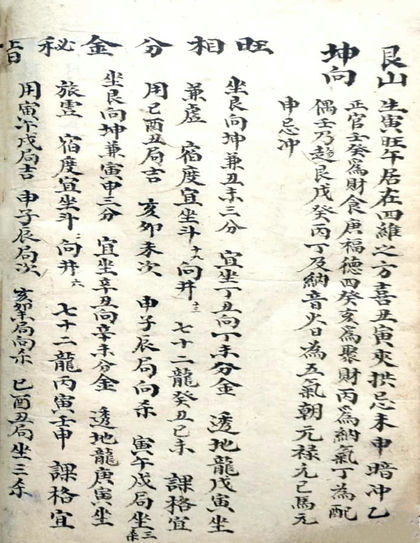 艮山坤向
生寅旺午居在四維之方喜丑寅夾拱忌未申暗冲乙
正官壬癸為財食庚福德四癸亥為聚財丙為納氣丁為配
偶壬乃趨艮戊癸丙丁及納音火日為五氣朝元祿元巳馬元
申忌冲
旺相分金秘旨
坐艮向坤兼丑未三分 宜坐丁丑向丁未分金 透地龍戊寅坐
兼虛 宿度宜坐斗十九向井三 七十二龍癸丑巳未 課格宜
用巳酉丑局吉 亥卯未次 申子辰局向杀 寅午戌局坐三杀
坐艮向坤兼寅申三分 宜坐辛丑向辛未分金 透地龍庚寅坐
旅雲 宿度宜坐斗三向井六 七十二龍丙寅壬申 課格宜
用寅午戌局吉 申子辰局次 亥卯未局向杀 巳酉丑局坐三杀